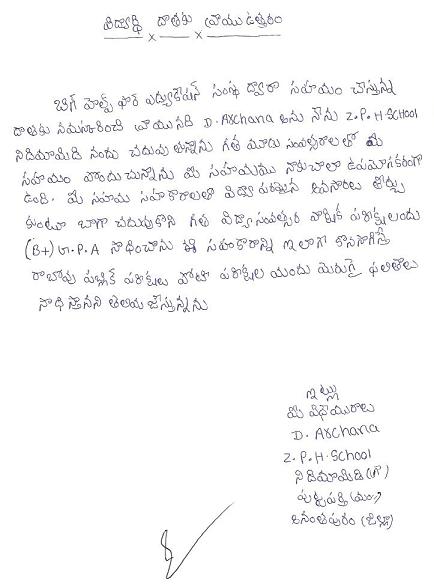 విద్యార్థి దాతకు వ్రాయు ఉత్తరం
బిగ్ హెల్ప్ ఫర్ ఎడ్యుకేషన్ సంస్థ ద్వారా సహయం చేస్తున్న
దాతకు నమస్కరించి వ్రాయునది D. Archana అను నేను Z.P.H SCHOOL
నిడిమామిడి నందు చదువు తున్నాను గత మూడు సంవత్సరాలలో మీ
సహయం పొందుచున్నాను మీ సహయము నాకుచాలా ఉపయోగకరంగా
ఉంది. మీ సహయ సహకారాలతో విద్యా పరమైన అవసరాలు తీర్చు
కుంటూ బాగా చదువుకొని గత విద్యా సంవత్సర వార్షిక పరీక్షలందు
(B+) G.P.A సాధించాను ఈ సహకారాన్ని ఇలాగే కొనసాగిస్తే
రాబోవు పబ్లిక్ పరీక్షలు పోటీ పరీక్షల యందు మెరుగై ఫలితాలు
సాధిస్తానని తెలియ జేస్తున్నాను
ఇట్లు
మీ విధేయురాలు
D. Archana
Z.P.H. School
నిడిమామిడి (గ్రా)
పుట్టపర్తి (మం)
అనంతపురం (జిల్లా)